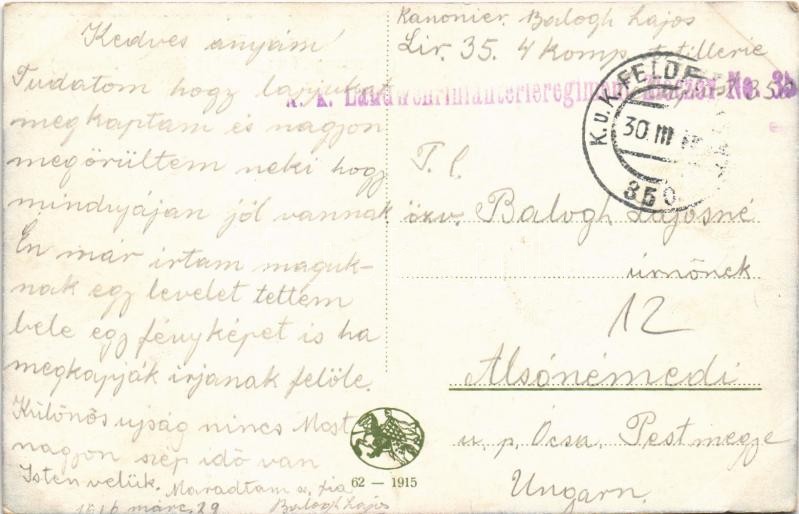 Kedves anyám!
Tudatom hogy lapjukat
megkaptam és nagyon
megörültem neki hogy
mindnyájan jól vannak
Én már írtam maguk-
nak egy levelet tettem
bele egy fényképet is ha
megkapják írjanak felöle.
Különös ujság nincs Most
nagyon szép idö van
Isten velük. Maradtam sz. fia
1916 márc. 29 Balogh Lajos
Kanonier. Balogh Lajos
Lir. 35. 4 komp.
k. k. Landwehrinfanterieregiment No. 35
K.u.K. FELDP
30. III
350
T. c.
özv. Balogh Lajosné
úrnönek
12
Alsónémedi
u. p. Ócsa. Pestmegye
Ungarn.
62 — 1915